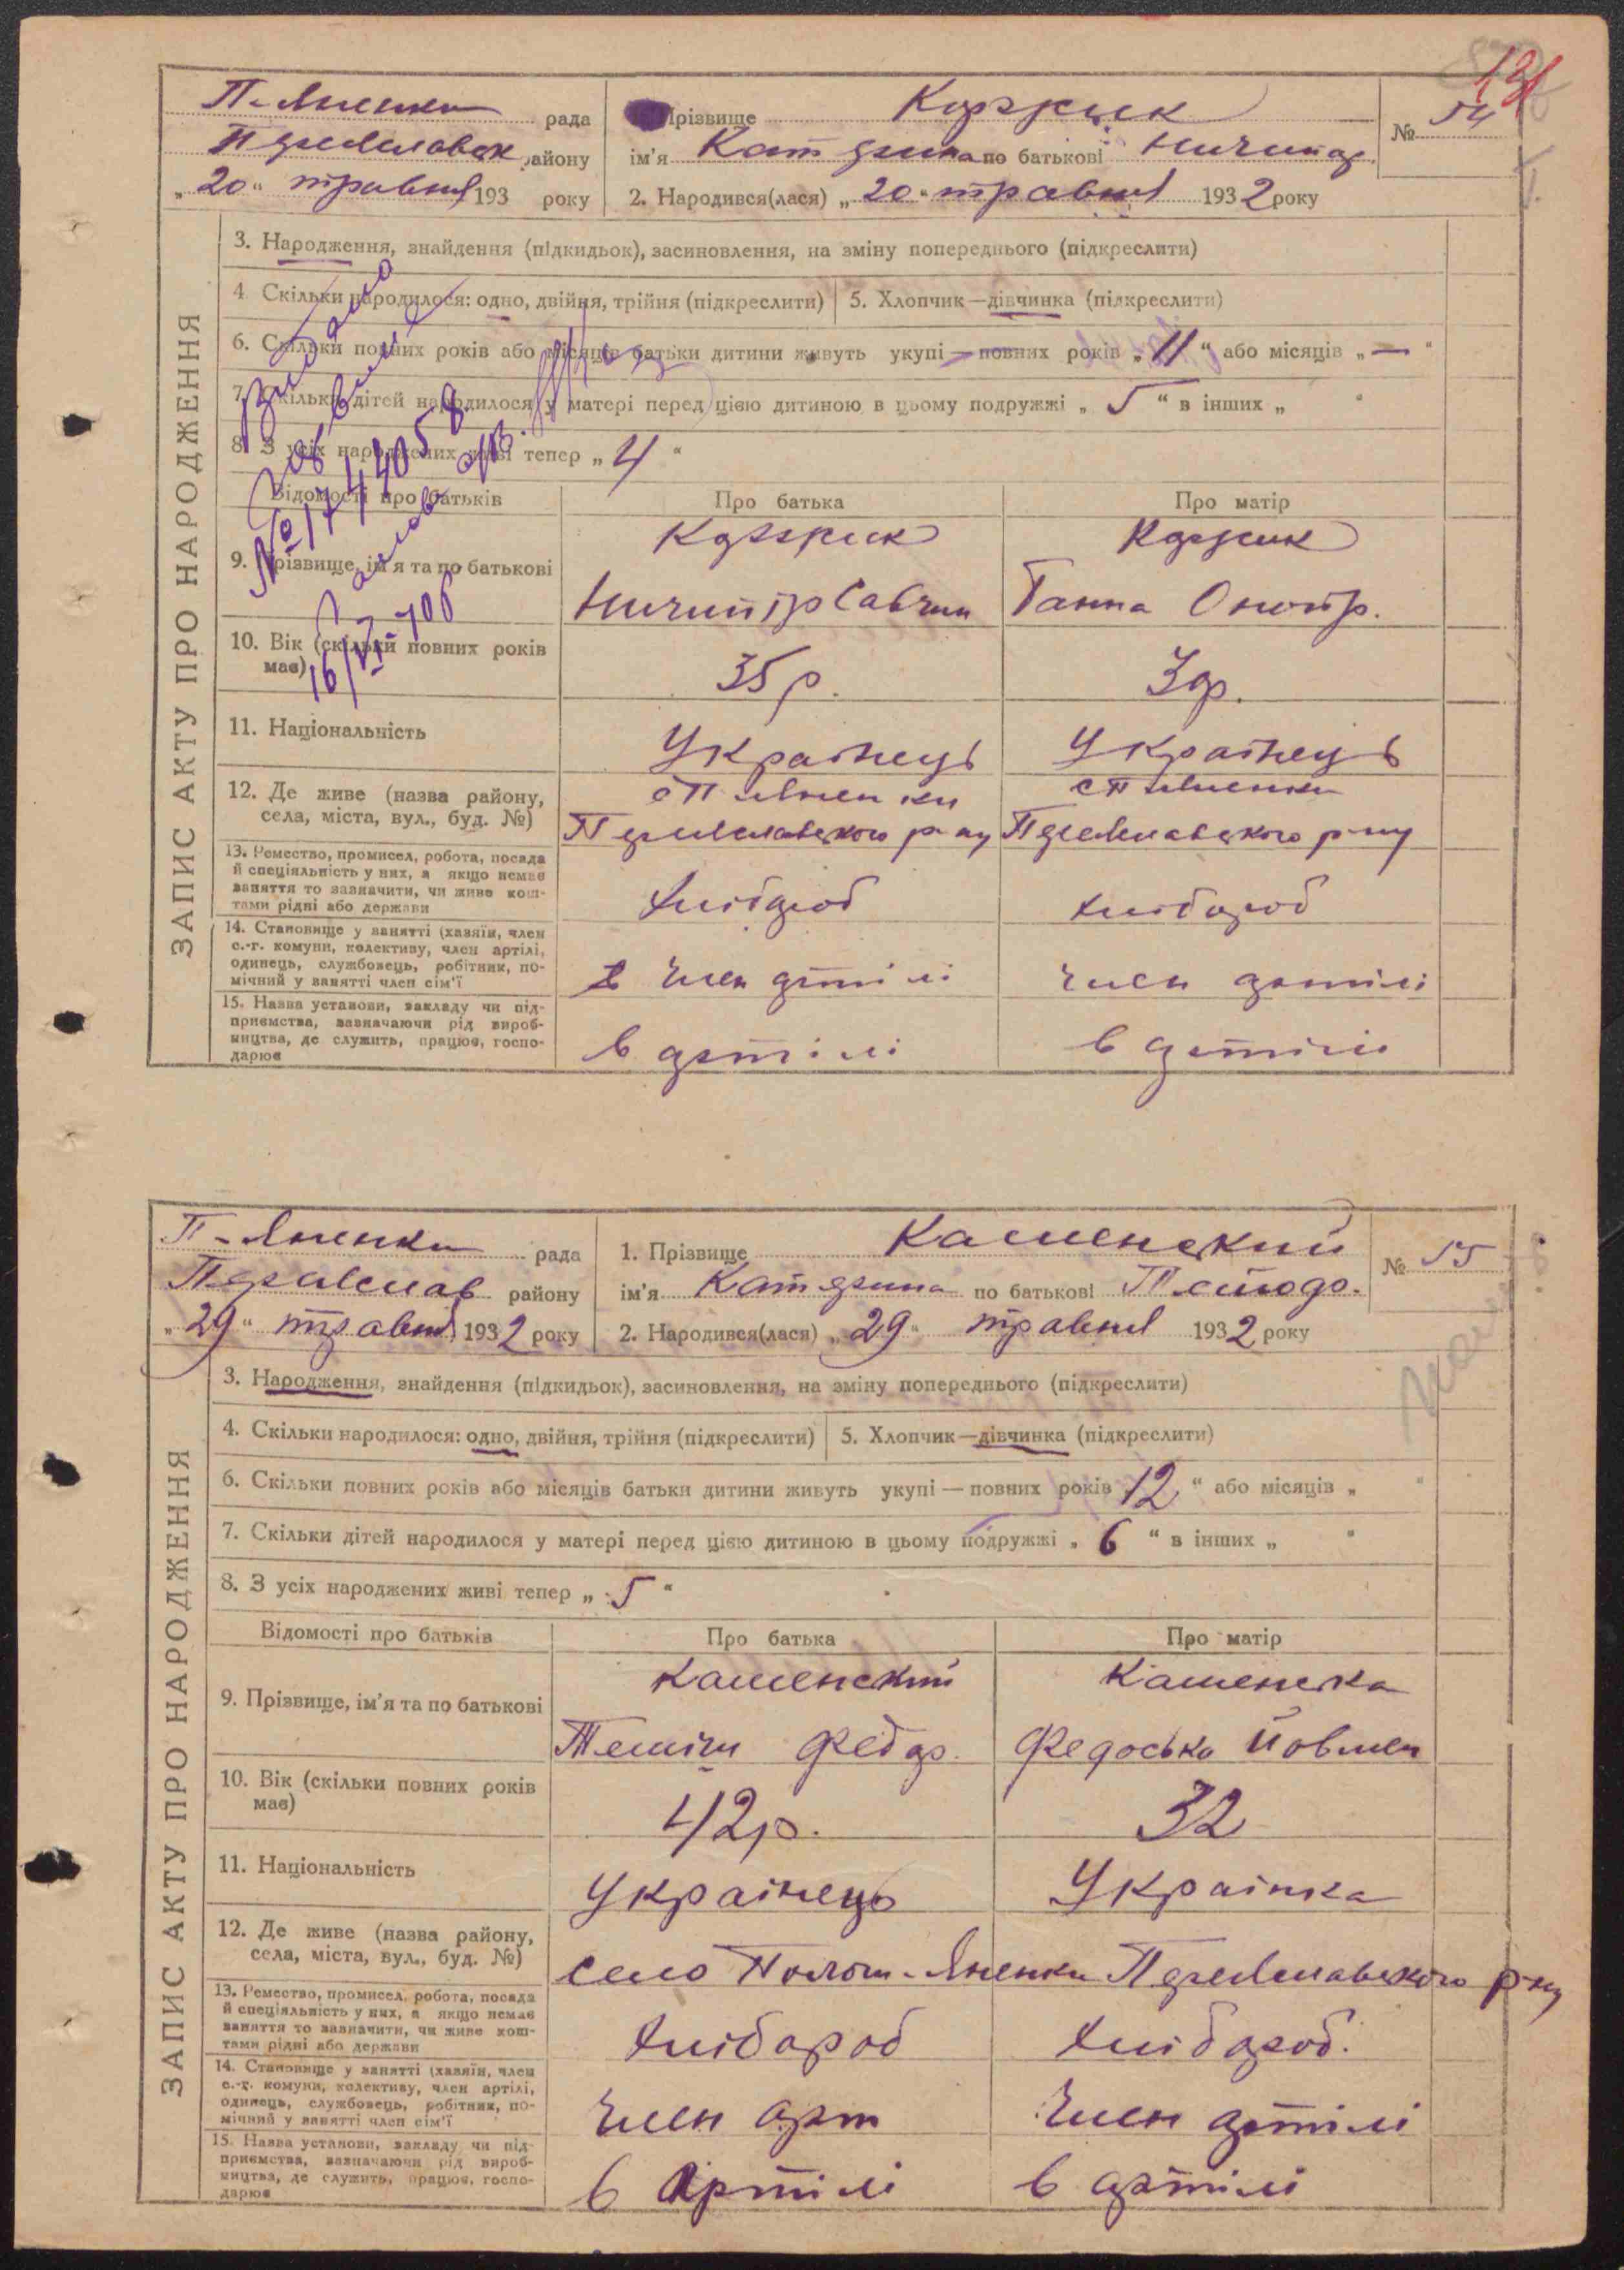 131
П-Яненки рада
Переяславськ району
„20“ травня 193 року
Прізвище Коржик
ім'я Катерина по батькові Ничипор.
2. Народився(лася) „20“ травня 1932 року
№ 54
ЗАПИС АКТУ ПРО НАРОДЖЕННЯ
3. Народження, знайдення (підкидьок), засиновлення, на зміну попереднього (підкреслити)
4. Скільки народилося: одно, двійня, трійня (підкреслити)
5. Хлопчик—дівчинка (підкреслити)
6. Скільки повних років або місяців батьки дитини живуть укупі—повних років „11“ або місяців „—“
7. Скільки дітей народилося у матері перед цією дитиною в цьому подружжі „5“ в інших „ “
8. З усіх народжених живі тепер „4“
№ 1744058
16/VI-70б
Відомості про батьків
Про батька
Про матір
9. Прізвище, ім'я та по батькові
Коржик
Ничипір Савчин
Коржик
Ганна Онопр.
10. Вік (скільки повних років має)
35 р.
11. Національність
Українець
Українець
12. Де живе (назва району,
села, міста, вул., буд. №)
Переяславського р-ну
Переяславського р-ну
13. Ремество, промисел, робота, посада
й спеціяльність у них, а якщо немає
заняття то зазначити, чи живе кош-
тами рідні або держави
Хлібороб
хлібороб
14. Становище у занятті (хазяїн, член
с.-г. комуни, колективу, член артілі,
одинець, службовець, робітник, по-
мічний у занятті член сім'ї
член артілі
член артілі
15. Назва установи, закладу чи під-
приємства, зазначаючи рід вироб-
ництва, де служить, працює, госпо-
дарює
в артілі
в артілі
П-Яненки рада
Переяслав району
„29“ травня 1932 року
1. Прізвище Каменский
ім'я Катерина по батькові
2. Народився(лася) „29“ травня 1932 року
№ 55
ЗАПИС АКТУ ПРО НАРОДЖЕННЯ
3. Народження, знайдення (підкидьок), засиновлення, на зміну попереднього (підкреслити)
4. Скільки народилося: одно, двійня, трійня (підкреслити)
5. Хлопчик—дівчинка (підкреслити)
6. Скільки повних років або місяців батьки дитини живуть укупі—повних років „12“ або місяців „ “
7. Скільки дітей народилося у матері перед цією дитиною в цьому подружжі „6“ в інших „ “
8. З усіх народжених живі тепер „5“
Відомості про батьків
Про батька
Про матір
9. Прізвище, ім'я та по батькові
Каменский
Федор.
Каменська
Федоська
10. Вік (скільки повних років
має)
42 р.
32
11. Національність
Українець
Українка
12. Де живе (назва району,
села, міста, вул., буд. №)
село Полог-Яненки Переяславського р-ну
13. Ремество, промисел, робота, посада
й спеціяльність у них, а якщо немає
заняття то зазначити, чи живе кош-
тами рідні або держави
Хлібороб
Хлібороб.
14. Становище у занятті (хазяїн, член
с.-г. комуни, колективу, член артілі,
одинець, службовець, робітник, по-
мічний у занятті член сім'ї
член арт
Член артілі
15. Назва установи, закладу чи під-
приємства, зазначаючи рід вироб-
ництва, де служить, працює, госпо-
дарює
в Артілі
в артілі